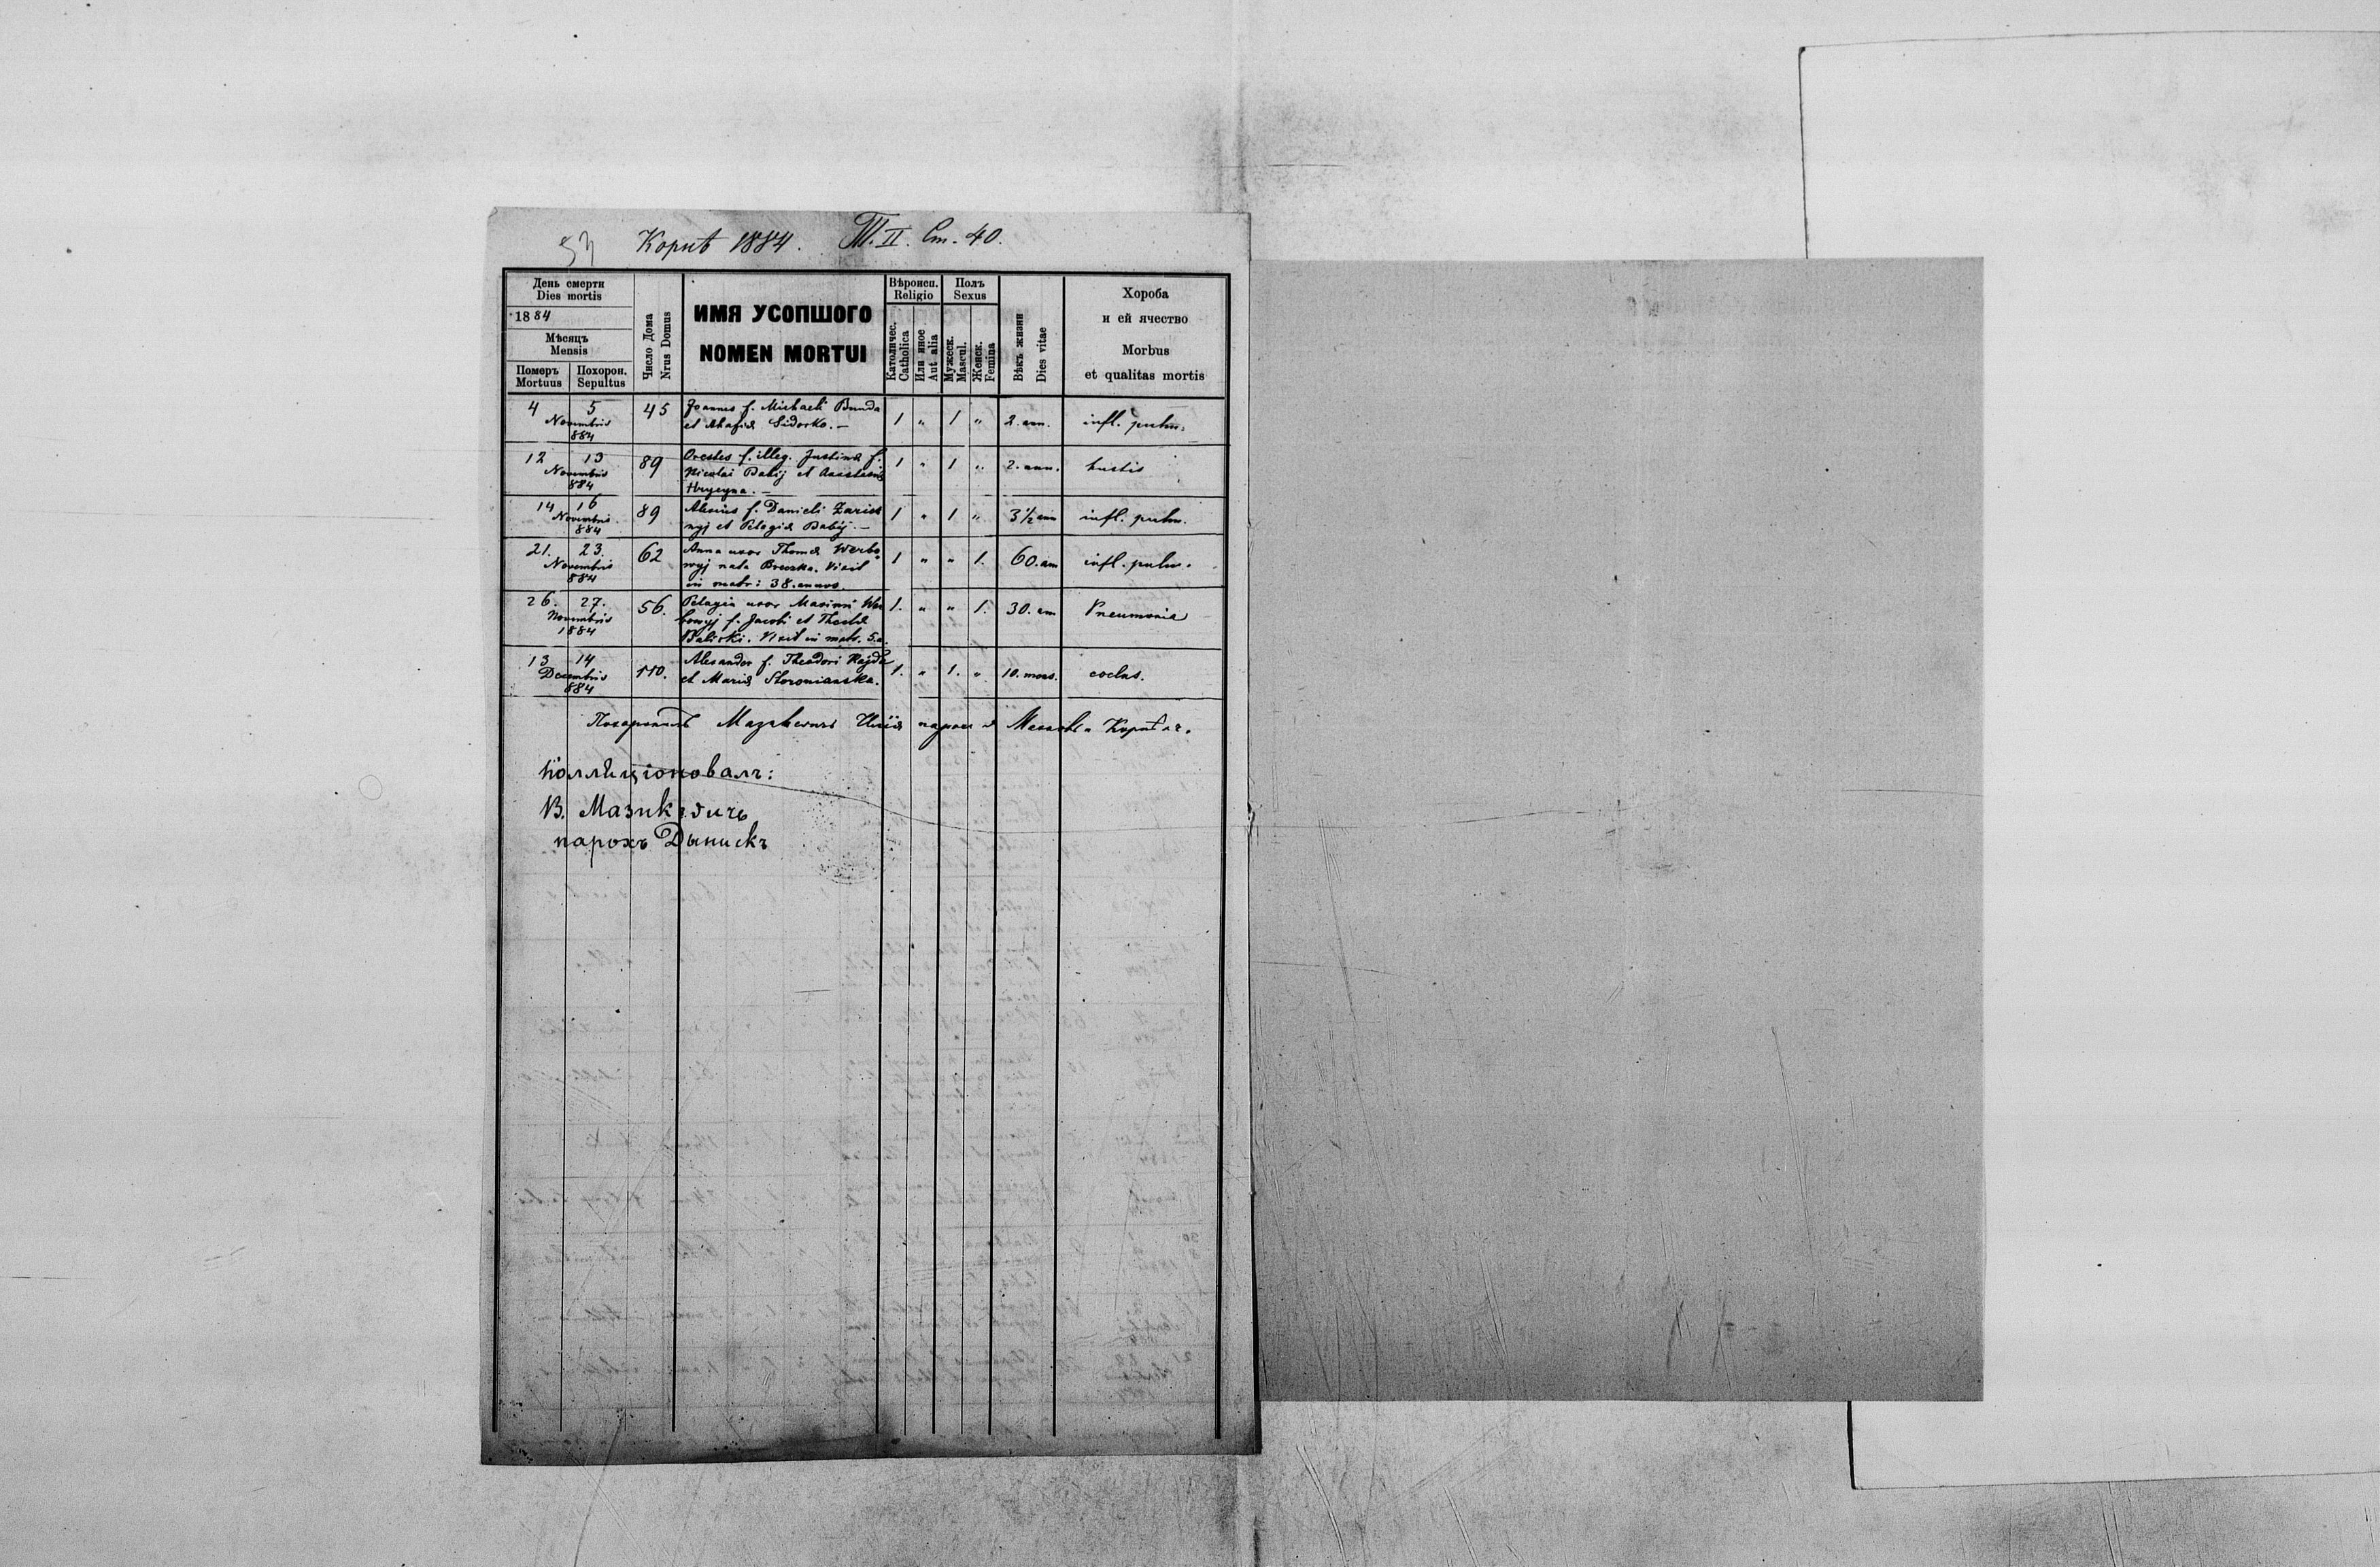 53 Корнѣ 1884. Т. II. Ст. 40.
День смерти
Dies mortis
1884
Мѣсяцъ
Mensis
Померъ Похорон.
Mortuus Sepultus
Число Дома
Nrus Domus
ИМЯ УСОПШОГО
NOMEN MORTUI
Вѣроисп.
Religio
Католичес.
Catholica
Или иное
Aut alia
Полъ
Sexus
Мужеск.
Mascul.
Женск.
Femina
Вѣкъ жизни
Dies vitae
Хороба
и ей ячество
Morbus
et qualitas mortis
4 5 45 Joannes f. Michaeli Bunda 1 „ 1 „ 2. ann. infl. pulm.
Novembris et Ahafia Sidorko. —
884
12 13 89 Orestes f. illeg. Justina f. 1 „ 1 „ 2. ann. tussis
Novembris Nicolai Babij et Anastasia
884 Hrycyna. —
14 16 89 Alexius f. Danieli Zaricz 1 „ 1 „ 3 1/2 ann infl. pulm.
Novembris nyj et Pelagia Babij. —
884
21. 23. 62 Anna uxor Thoma Werbo 1 „ „ 1. 60. ann infl. pulm.
Novembris wyj nata Breczka. Vixit
884 in matr: 38. annos.
26. 27. 56. Pelagia uxor Maximi Wer 1. „ „ 1. 30. ann Pneumonia
Novembris bowyj f. Jacobi et Thecla
1884 Babiski. Vixit in matr. 5. a.
13 14 110. Alexander f. Theodori Hajda 1. „ 1. „ 10. mens.
Decembris et Maria Storonianska.
884
Похоронилъ Мазикевичъ парох
Колляціоновалъ:
В. Мазикевичъ
парохъ Дынискъ